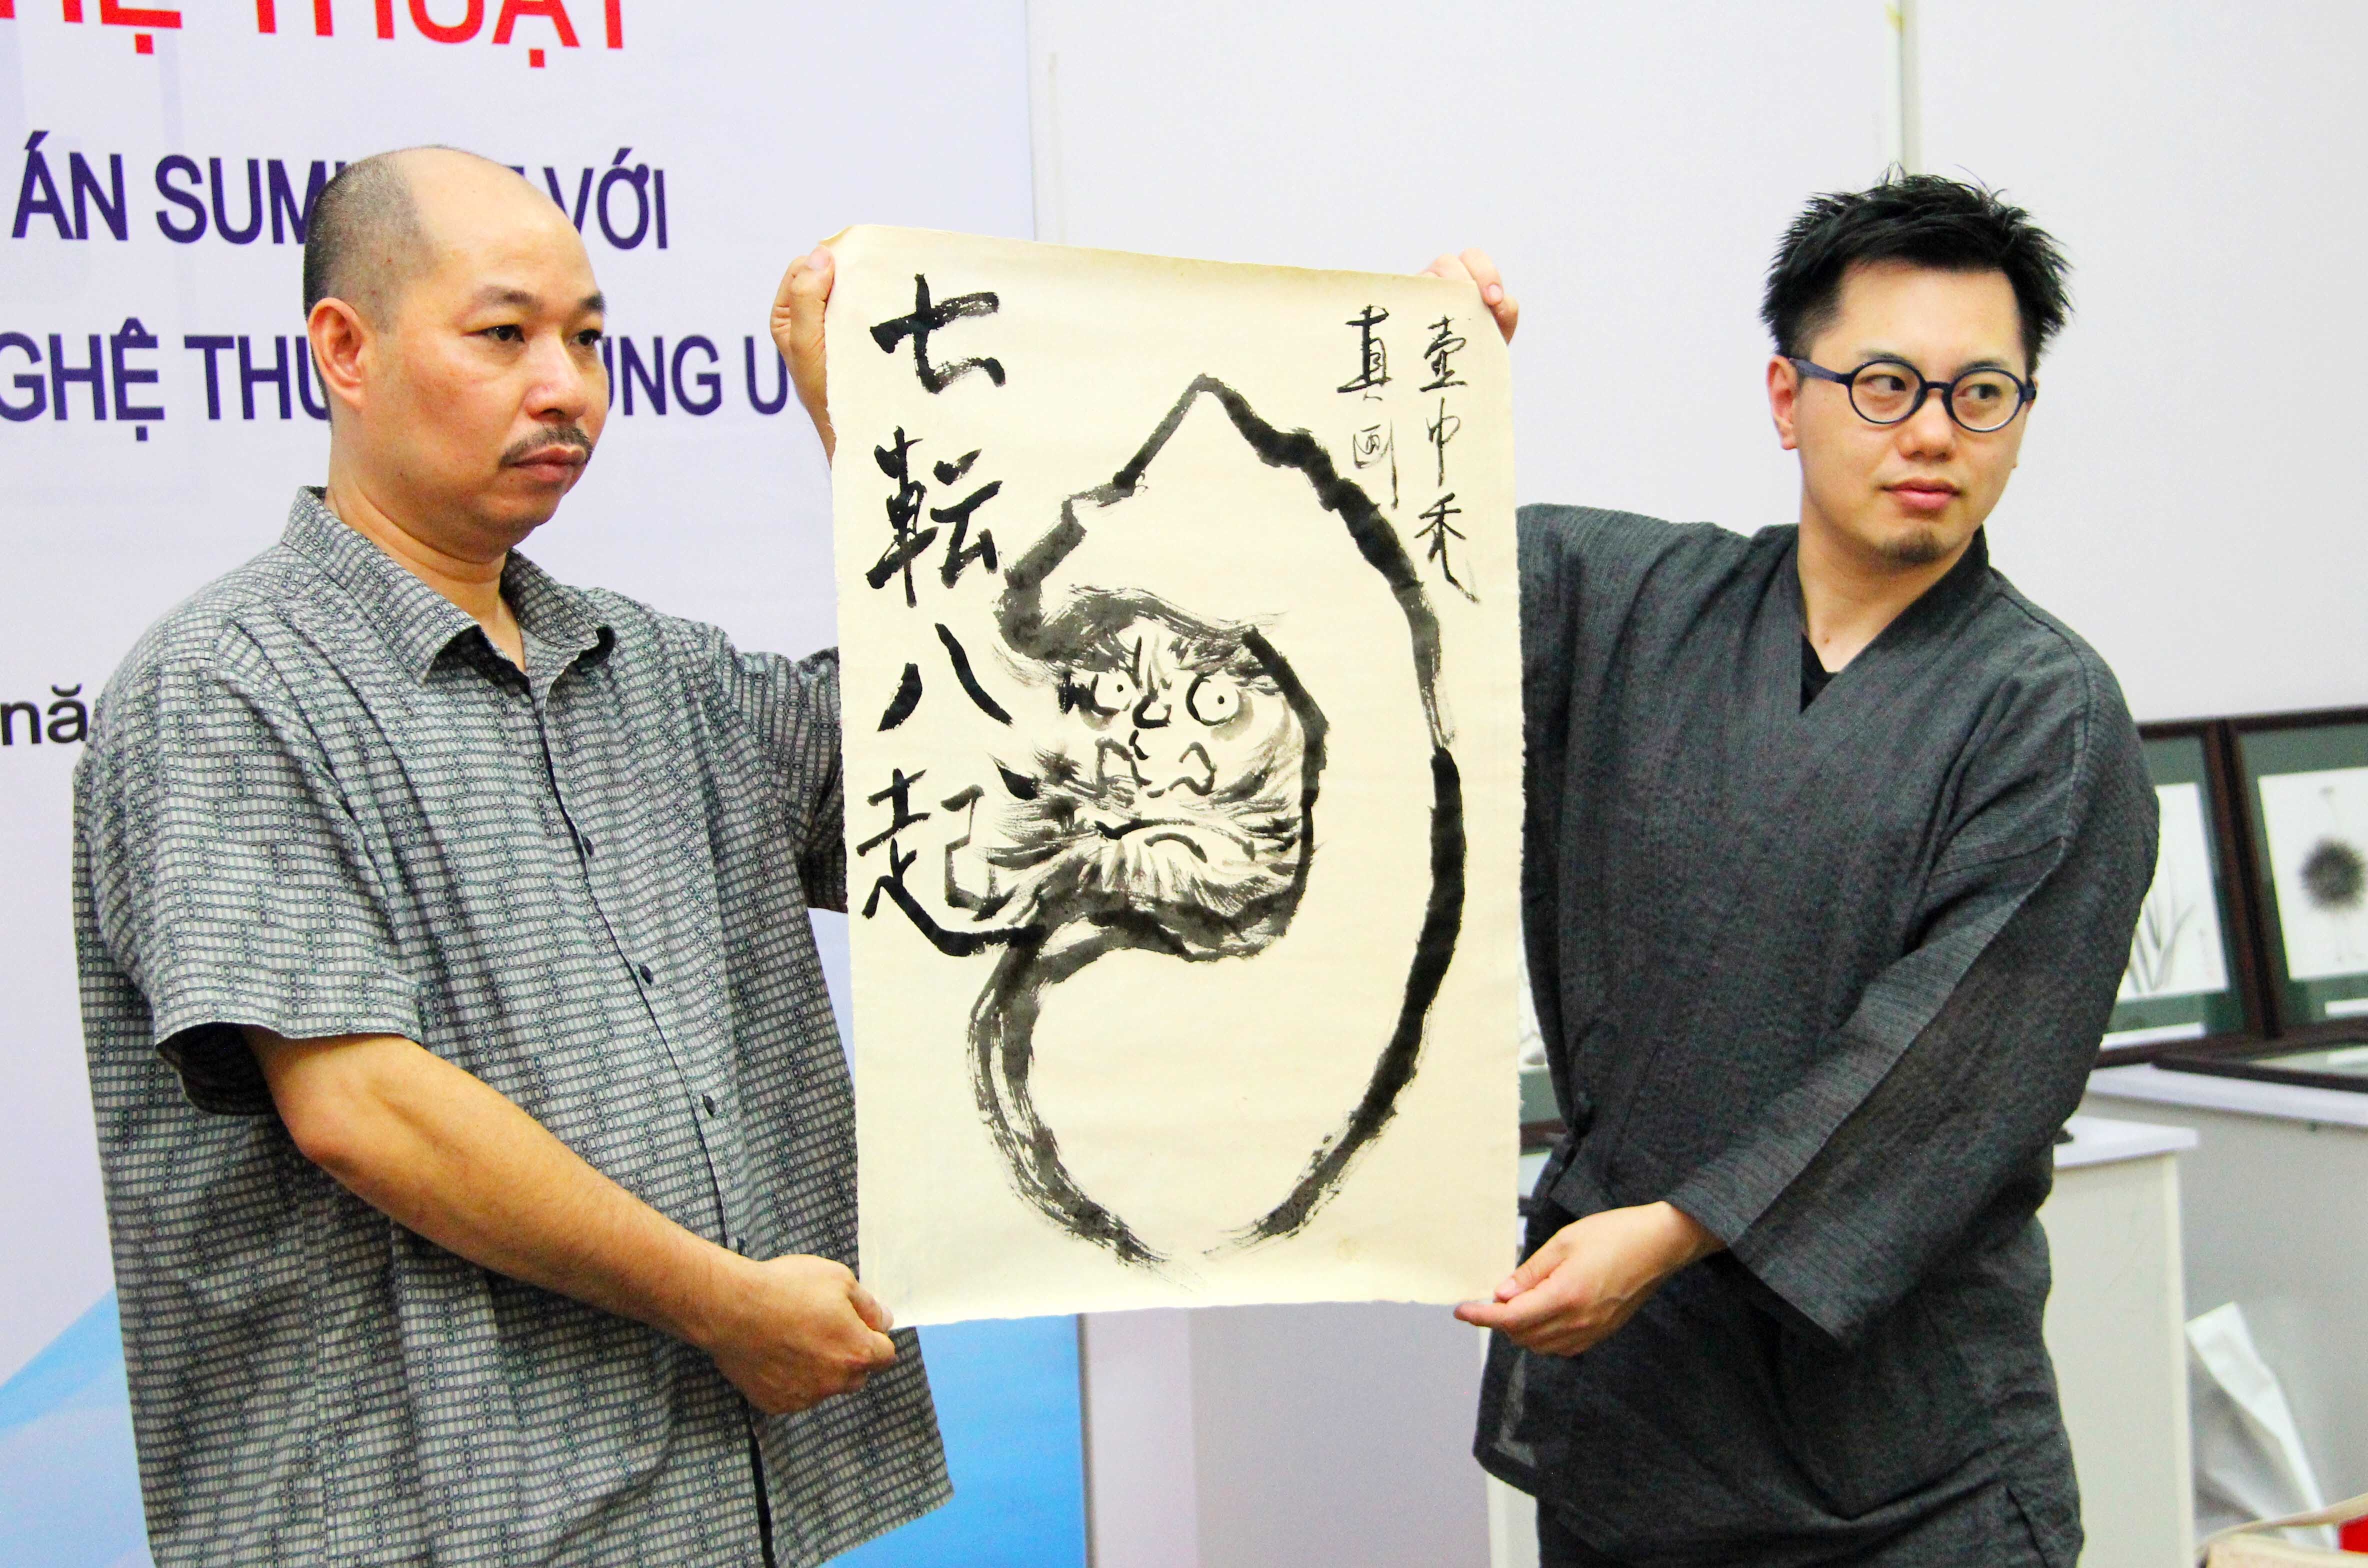 HỆ THUẬT
ÁN SUMI VỚI
GHỆ THU UNG U
nă
七転八起
真画